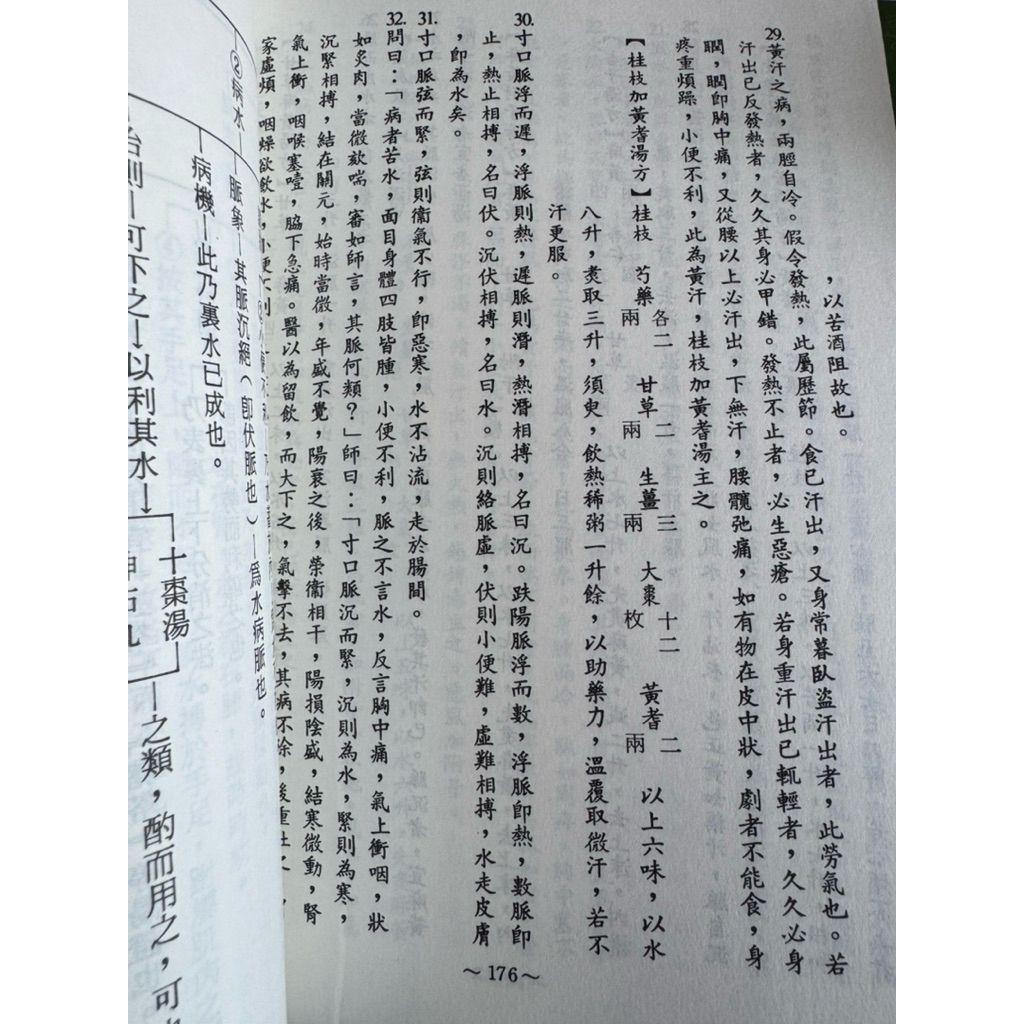 ，以苦酒阻故也。
29.黃汗之病，兩脛自冷。假令發熱，此屬歷節。食已汗出，又身常暮臥盜汗出者，此勞氣也。若
汗出已反發熱者，久久其身必甲錯。發熱不止者，必生惡瘡。若身重汗出已輒輕者，久久必身
瞤，瞤即胸中痛，又從腰以上必汗出，下無汗，腰髖弛痛，如有物在皮中狀，劇者不能食，身
疼重煩躁，小便不利，此為黃汗，桂枝加黃耆湯主之。
【桂枝加黃耆湯方】桂枝　芍藥各二兩　甘草二兩　生薑三兩　大棗十二枚　黃耆二兩　以上六味，以水
八升，煑取三升，須臾，飲熱稀粥一升餘，以助藥力，溫覆取微汗，若不
汗更服。
30.寸口脈浮而遲，浮脈則熱，遲脈則潛，熱潛相搏，名曰沉。趺陽脈浮而數，浮脈即熱，數脈即
止，熱止相搏，名曰伏。沉伏相搏，名曰水。沉則絡脈虛，伏則小便難，虛難相搏，水走皮膚
，即為水矣。
31.寸口脈弦而緊，弦則衛氣不行，即惡寒，水不沾流，走於腸間。
32.問曰：「病者苦水，面目身體四肢皆腫，小便不利，脈之不言水，反言胸中痛，氣上衝咽，狀
如炙肉，當微欬喘，審如師言，其脈何類？」師曰：「寸口脈沉而緊，沉則為水，緊則為寒，
沉緊相搏，結在關元，始時當微，年盛不覺，陽衰之後，榮衛相干，陽損陰盛，結寒微動，腎
氣上衝，咽喉塞噎，脇下急痛。醫以為留飲，而大下之，氣擊不去，其病不除，後重吐之，
家虛煩，咽燥欲飲水，小便不利
～176～
②病水—脈象—其脈沉絕（即伏脈也）—為水病脈也。
病機—此乃裏水已成也。
治則—可下之—以利其水—
十棗湯
—之類，酌而用之，可